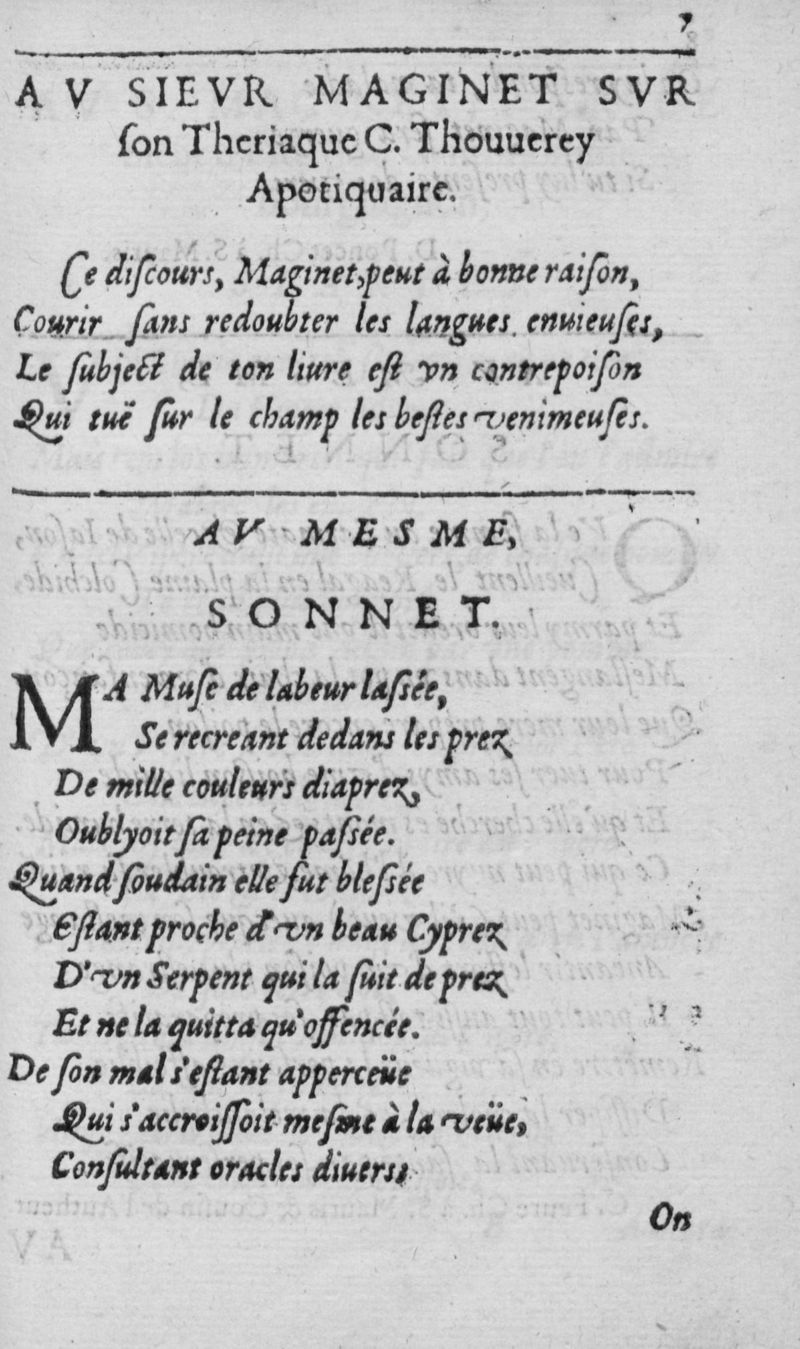 7
AV SIEVR MAGINET SVR
ſon Theriaque C. Thouuerey
Apotiquaire.
Ce diſcours, Maginet, peut à bonne raiſon,
Courir ſans redoubter les langues enuieuſes,
Le ſubject de ton liure eſt vn contrepoiſon
Qui tuë ſur le champ les beſtes venimeuſes.
AV MESME,
SONNET.
MA Muſe de labeur laſsée,
Se recreant dedans les prez
De mille couleurs diaprez,
Oublyoit ſa peine paſsée.
Quand ſoudain elle fut bleſsée
Eſtant proche d'vn beau Cyprez
D'vn Serpent qui la ſuit de prez
Et ne la quitta qu'offencée.
De ſon mal s'eſtant apperceüe
Qui s'accroiſſoit meſme à la veüe,
Conſultant oracles diuers,
On